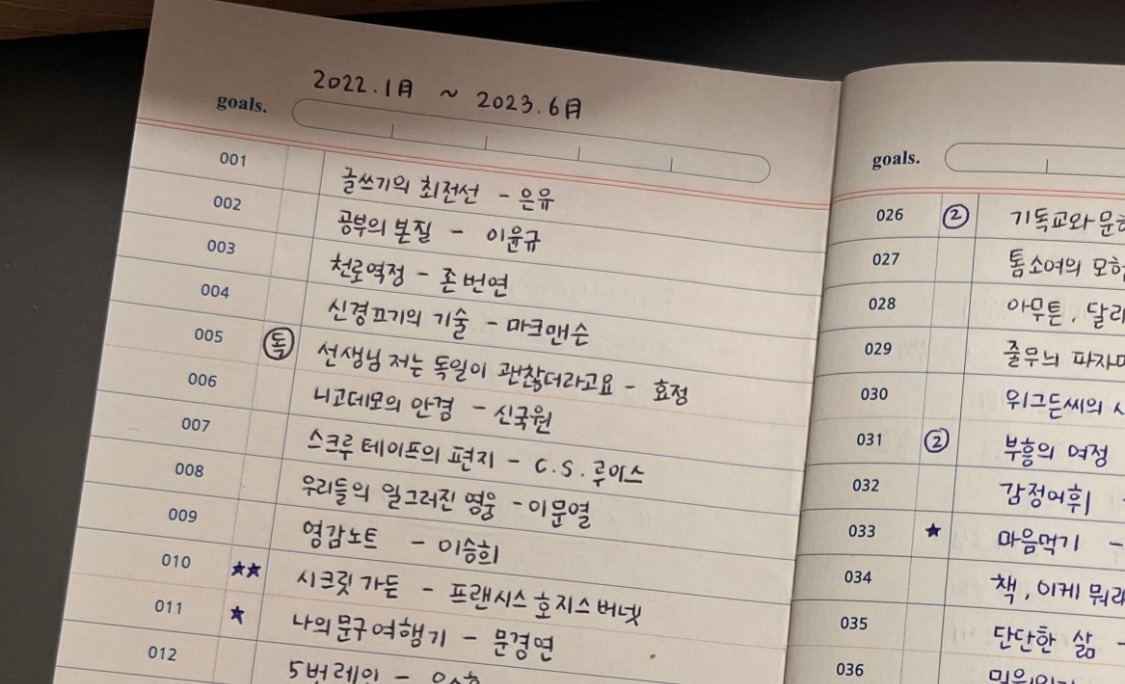 2022.1月 ~ 2023.6月
goals.
001 글쓰기의 최전선 - 은유
002 공부의 본질 - 이윤규
003 천로역정 - 존 번연
004 신경끄기의 기술 - 마크맨슨
005 독 선생님 저는 독일이 괜찮더라고요 - 효정
006 니고데모의 안경 - 신국원
007 스크루 테이프의 편지 - C.S.루이스
008 우리들의 일그러진 영웅 - 이문열
009 영감노트 - 이승희
010 ★★ 시크릿 가든 - 프랜시스 호지스 버넷
011 ★ 나의 문구 여행기 - 문경연
012 5번 레인 -
goals.
026 ② 기독교와
027 톰소여의
028 아무튼,
029 줄무늬
030 위그든씨의
031 ② 부흥의 여정
032 감정어휘
033 ★ 마음먹기 -
034 책, 이게
035 단단한 삶 -
036